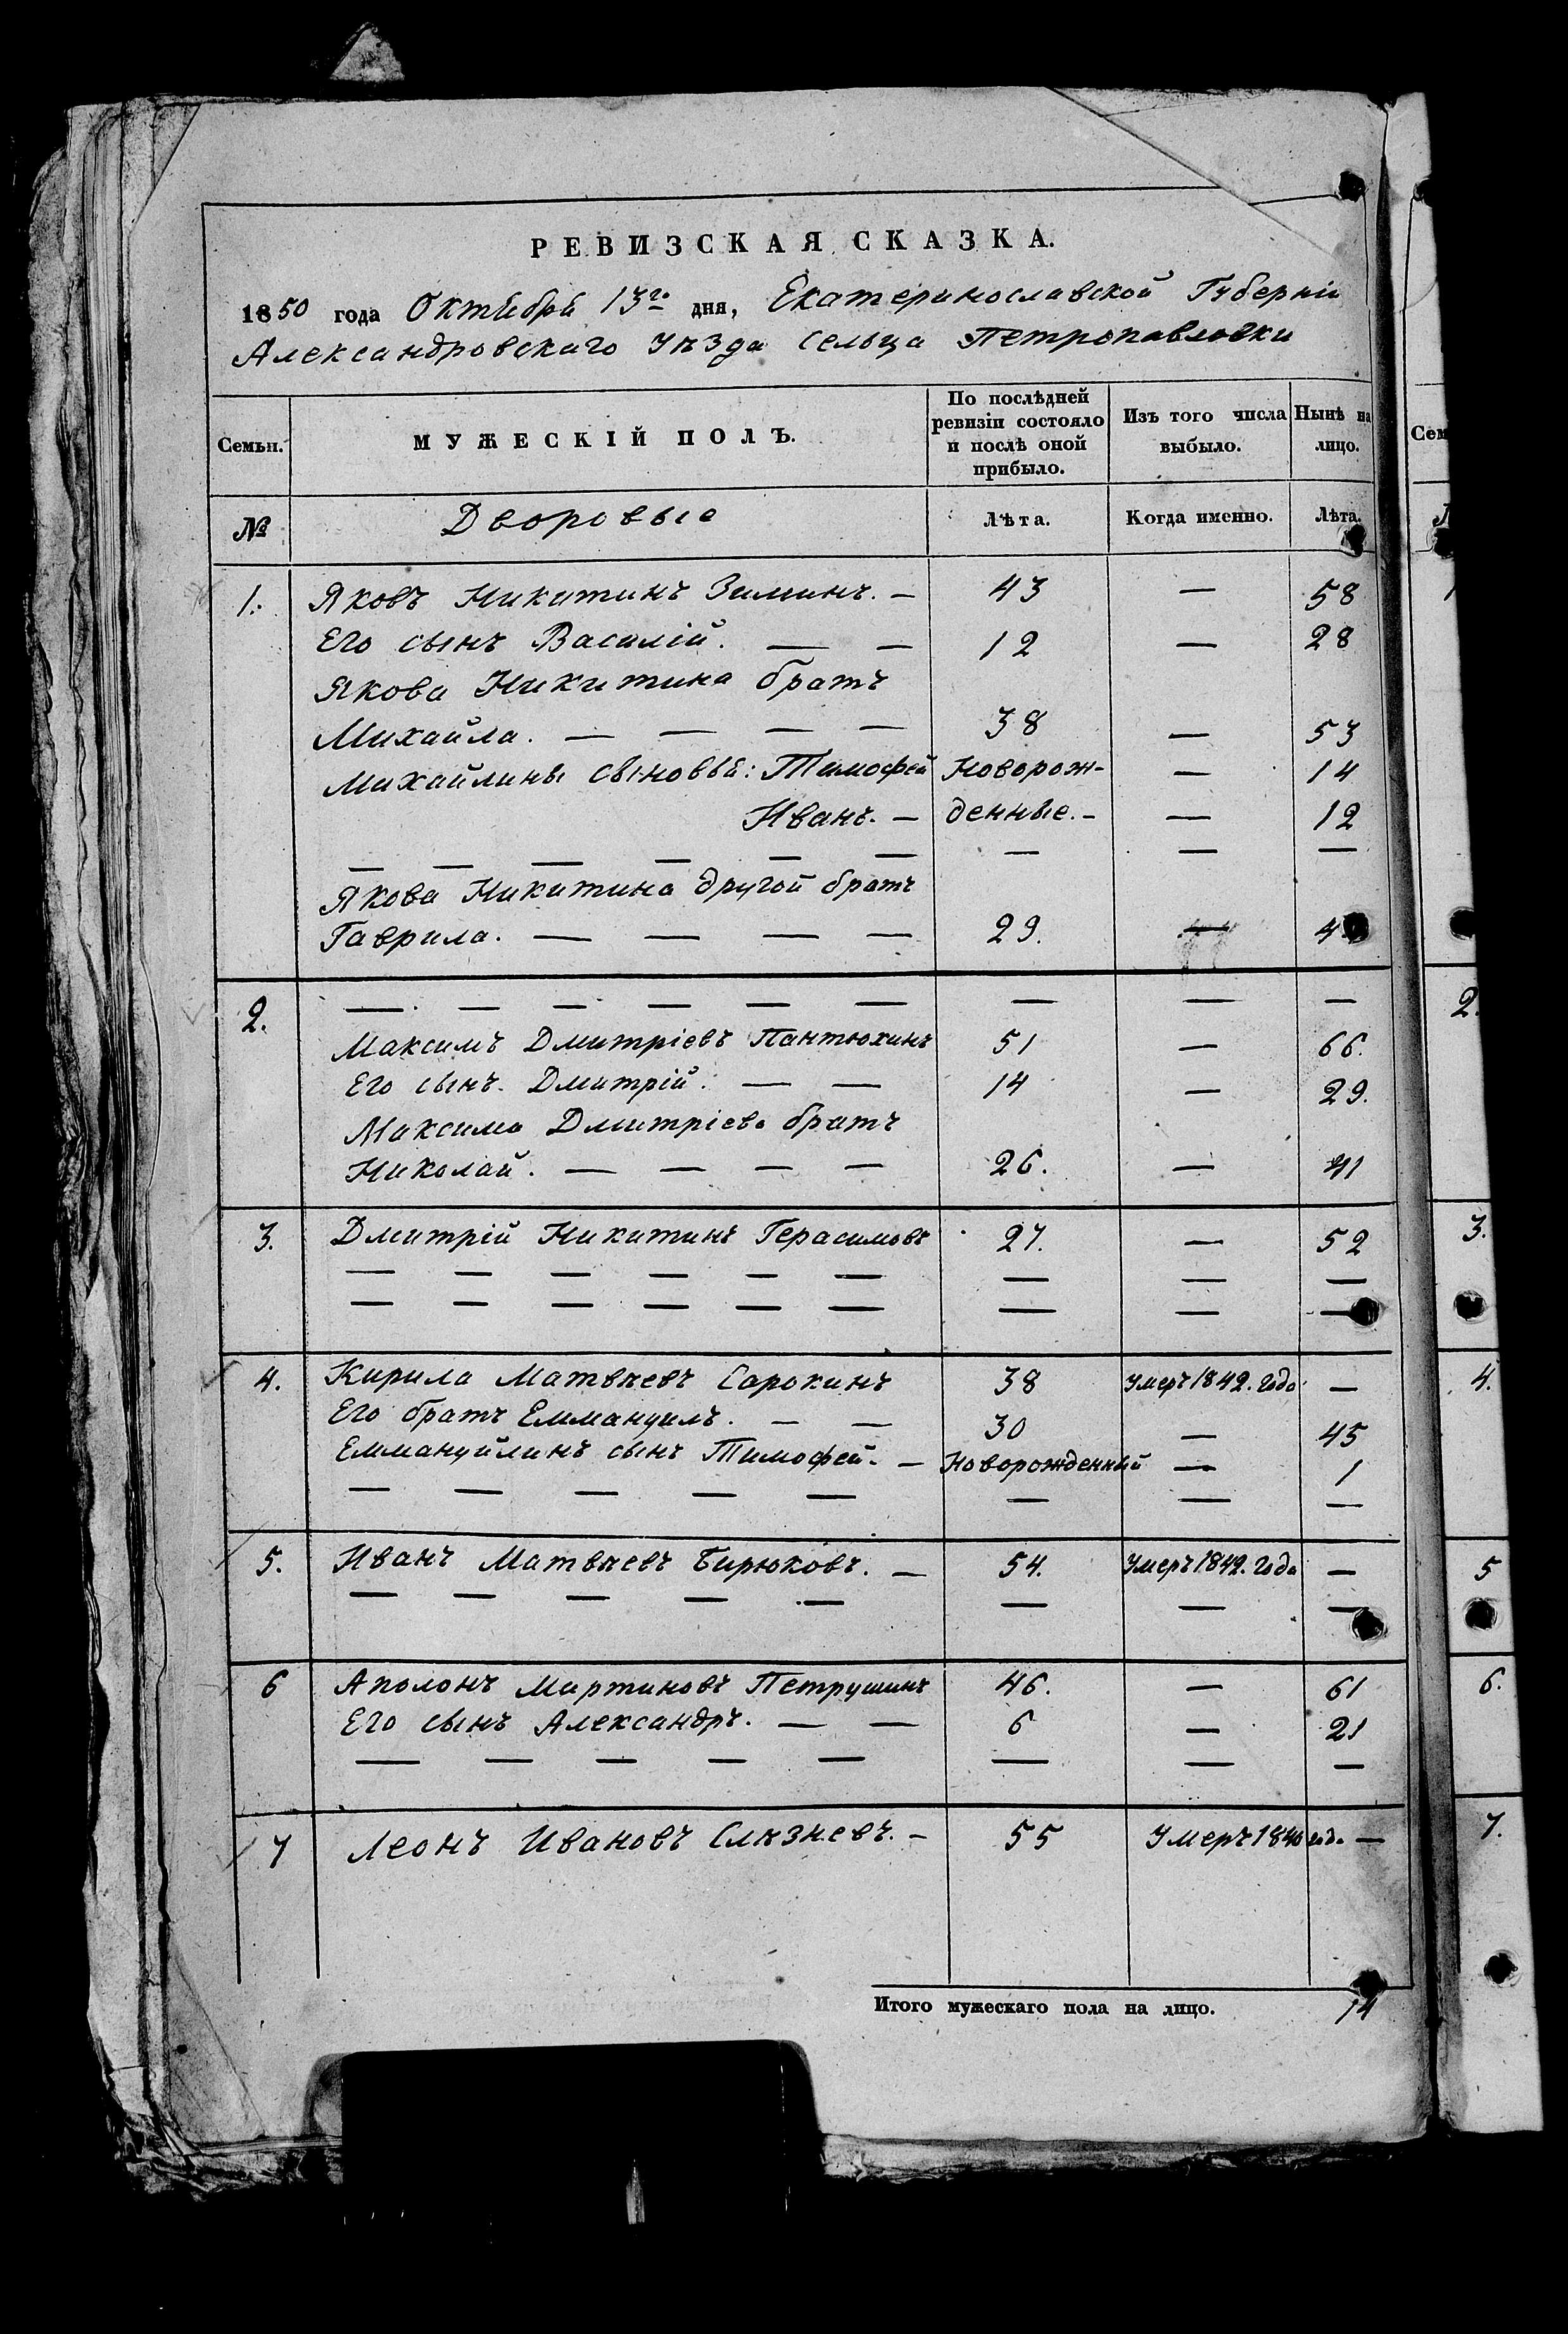 РЕВИЗСКАЯ СКАЗКА.
1850 года Октября 13го дня, Екатеринославской Губерніи
Александровскаго Уѣзда Сельца Петропавловки
Семьи. МУЖЕСКІЙ ПОЛЪ. По послѣдней ревизіи состояло и послѣ оной прибыло. Изъ того числа выбыло. Нынѣ на лицо.
№ Дворовые Лѣта. Когда именно. Лѣта.
1. Яковъ Никитинъ Зиминъ. — 43 — 58
Его сынъ Василій. — — 12 — 28
Якова Никитина братъ
Михайла. — — — — 38 — 53
Михайлины сыновья: Тимофей Новорож- — 14
Иванъ. — денные. — — 12
— — — — — — — — —
Якова Никитина другой братъ
Гаврила. — — — — 29. — 4
2. — — — — — — — — —
Максимъ Дмитріевъ Пантюхинъ 51 — 66.
Его сынъ Дмитрій. — — 14 — 29.
Максима Дмитріева братъ
Николай. — — — — 26. — 41
3. Дмитрій Никитинъ Герасимовъ 27. — 52
— — — — — — — — —
— — — — — — — — —
4. Кирила Матвѣевъ Сарокинъ 38 Умеръ 1842. года —
Его братъ Еммануилъ. — — 30 — 45
Еммануйлинъ сынъ Тимофей. — Новорожденный — 1
— — — — — — — —
5. Иванъ Матвѣевъ Бирюковъ. — 54. Умеръ 1842. года —
— — — — — — — —
6 Аполонъ Мартиновъ Петрушинъ 46. — 61
Его сынъ Александръ. — — 6 — 21
— — — — — — — —
7 Леонъ Ивановъ Слѣзневъ. — 55 Умеръ 1840 года —
Итого мужескаго пола на лицо. 14
Сем
1
2.
3.
4.
5
6.
7.